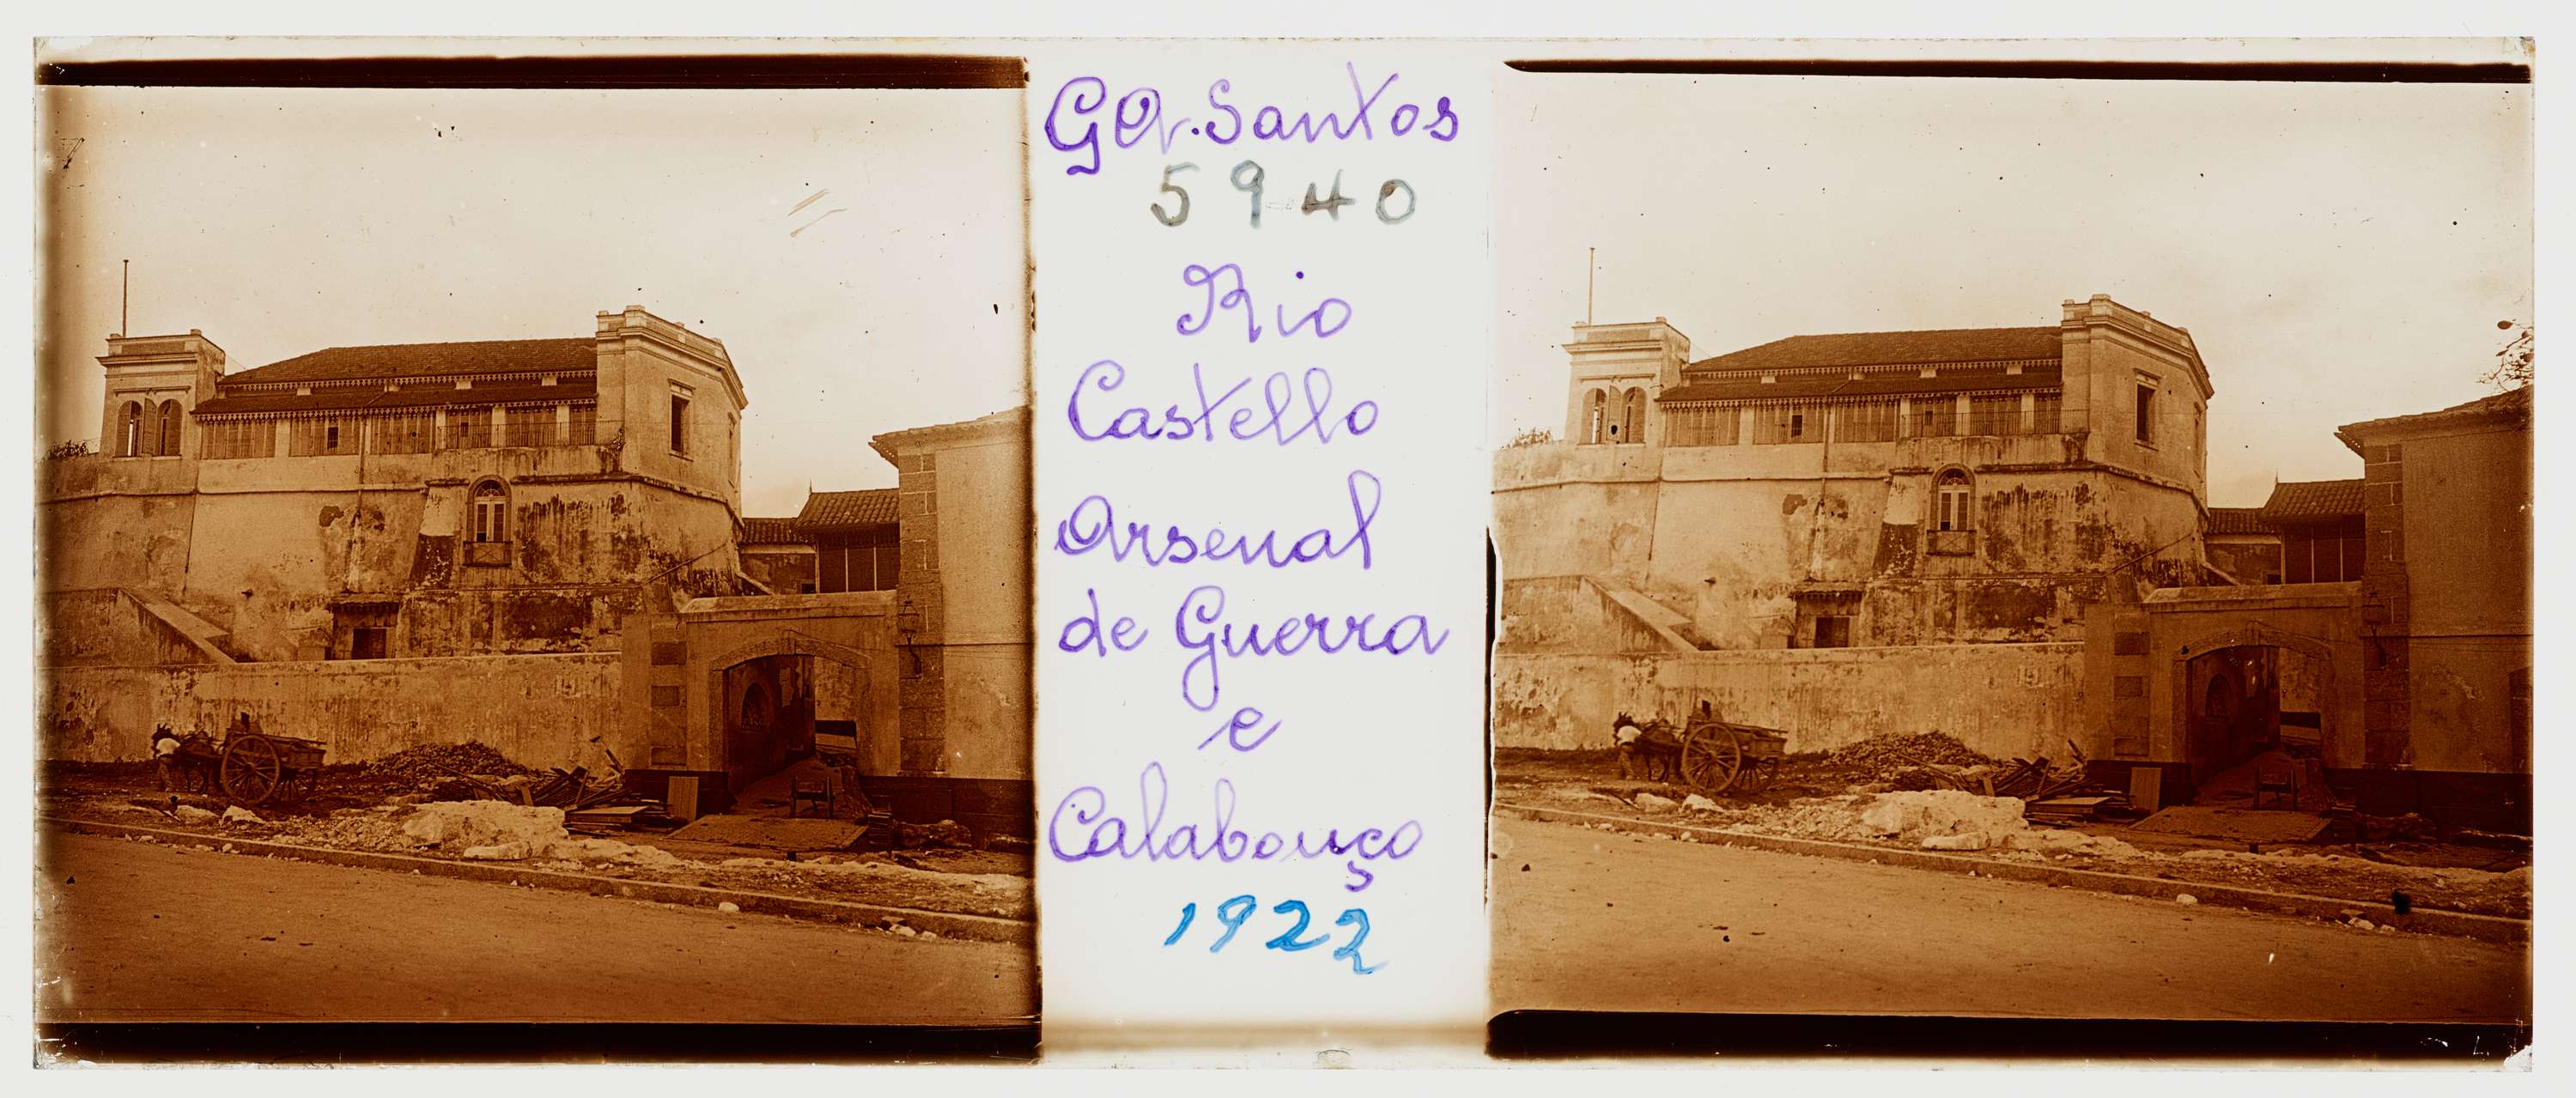 GA. Santos
5940
Rio
Castello
Arsenal
de Guerra
e
Calabouço
1922